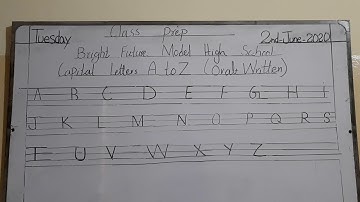 Class Prep
Tuesday 2nd-June-2020
Bright Future Model High School
Capital Letters A to Z (Oral & Written)
A B C D E F G H I
J K L M N O P Q R S
T U V W X Y Z